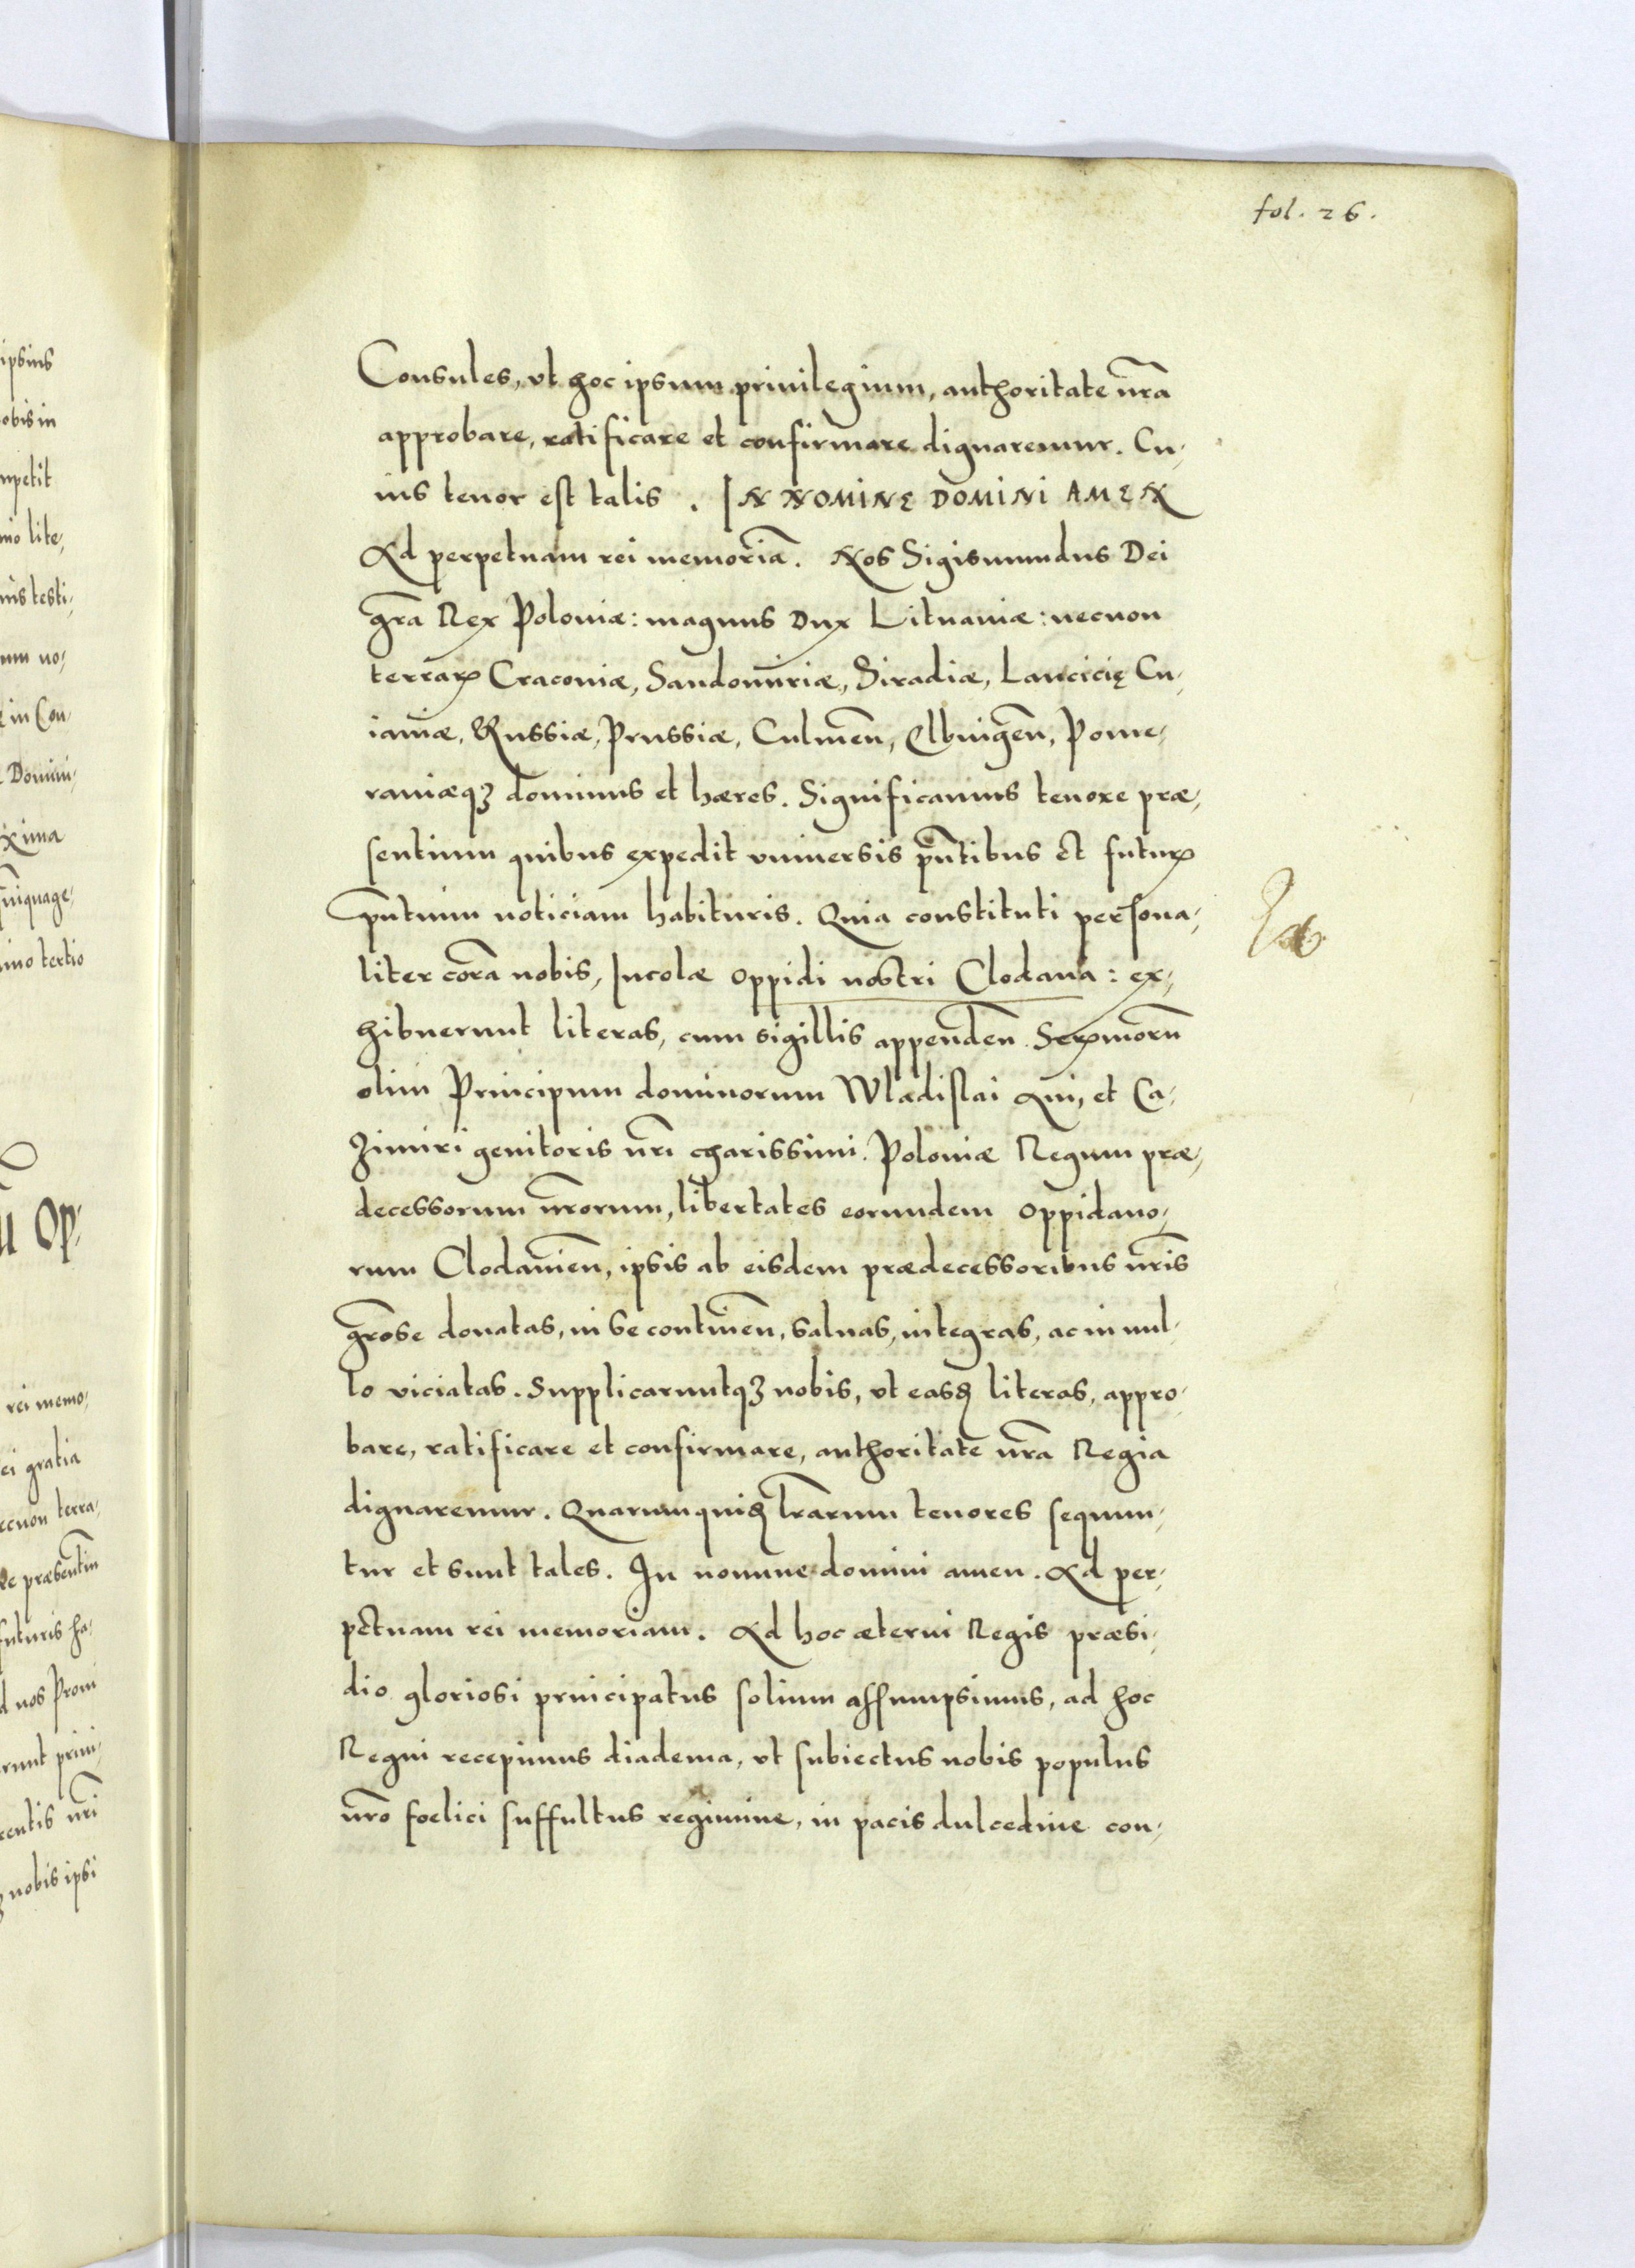 fol. 26.
Consules, vt hoc ipsum priuilegium, authoritate nr̃a
approbare, ratificare et confirmare dignaremur. Cu-
ius tenor est talis. IN NOMINE DOMINI AMEN
Ad perpetuam rei memoriã. Nos Sigismundus Dei
gr̃a Rex Poloniæ: magnus Dux Lituaniæ: necnon
terrarꝝ Craconiæ, Sandomiriæ, Siradiæ, Lancicię Cu-
iauiæ, Russiæ, Prussiæ, Culmeñ, Elbingeñ, Pome-
raniæqꝫ dominus et hæres. Significamus tenore præ-
sentium quibus expedit vniuersis pñtibus et futurꝝ
pñtium noticiam habituris. Quia constituti persona-
liter corã nobis, Incolæ oppidi nostri Clodaua: ex-
hibuerunt literas, cum sigillis appendeñ Serꝫmorũ
olim Principum dominorum Wladislai Aui, et Ca-
zimiri genitoris nr̃i charissimi. Poloniæ Regum præ-
decessorum nr̃orum, libertates eorundem oppidano-
rum Clodauieñ, ipsis ab eisdem prædecessoribus nr̃is
gr̃ose donatas, in se contineñ, saluas, integras, ac in nul-
lo viciatas. Supplicaruntqꝫ nobis, vt easꝺ literas, appro-
bare, ratificare et confirmare, authoritate nr̃a Regia
dignaremur. Quarumquiꝺ lr̃arum tenores sequun-
tur et sunt tales. In nomine domini amen. Ad per-
petuam rei memoriam. Ad hoc æterni Regis præsi-
dio gloriosi principatus solium assumpsimus, ad hoc
Regni recepimus diadema, vt subiectus nobis populus
nr̃o foelici suffultus regimine, in pacis dulcedine con-